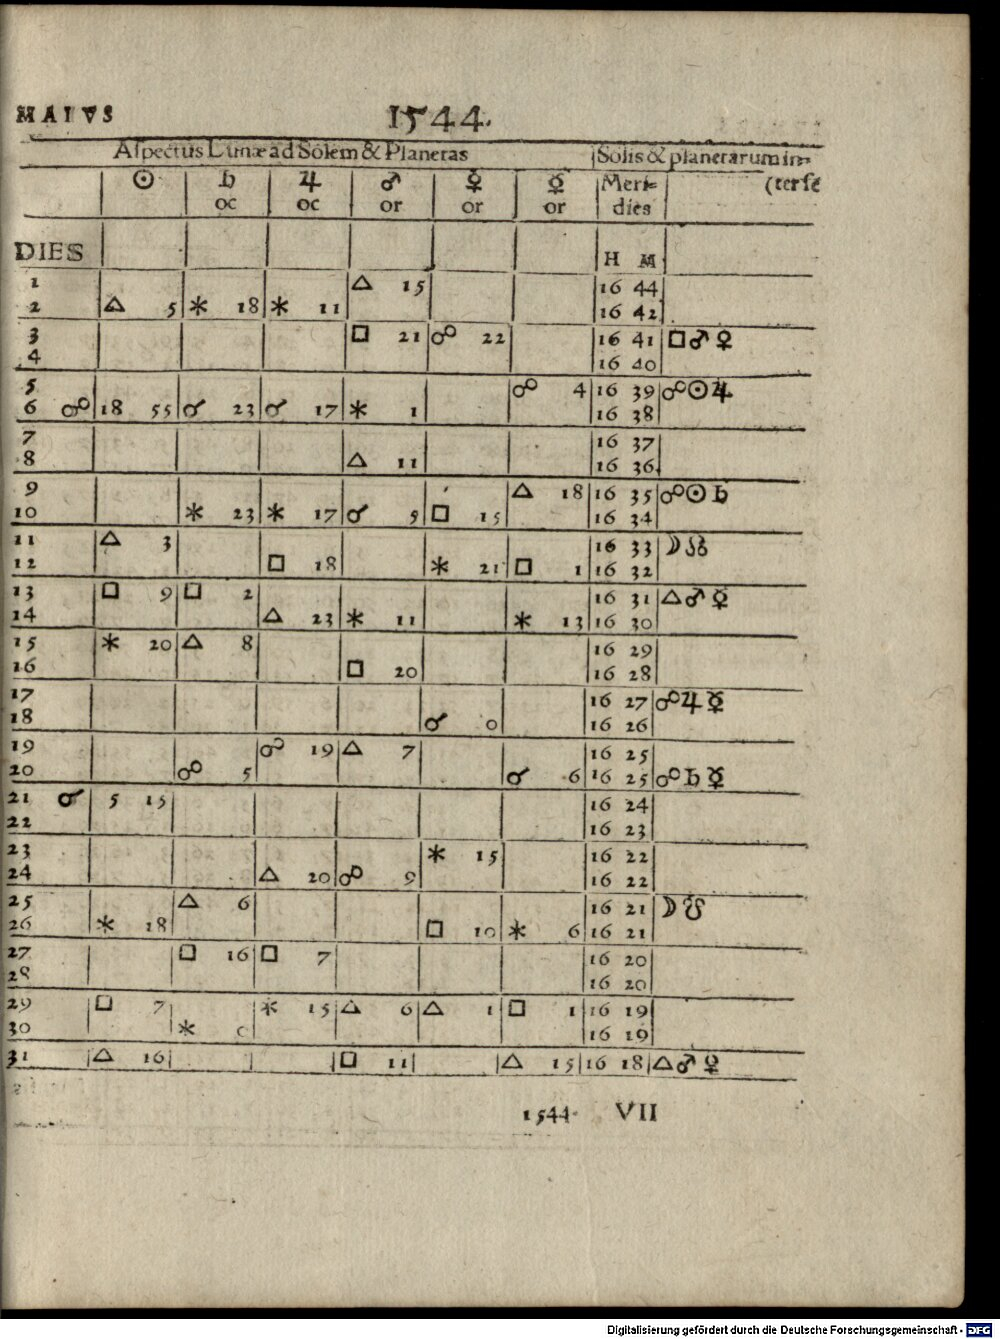 MAIVS 1544.
Aspectus Lunæ ad Solem & Planetas Solis & planetarum in-
☉ ♄ ♃ ♂ ♀ ☿ Meri- (ter se
oc oc or or or dies
DIES H M
1 △ 15 16 44
2 △ 5 ⚹ 18 ⚹ 11 16 42
3 □ 21 ☍ 22 16 41 □ ♂ ♀
4 16 40
5 ☍ 4 16 39 ☍ ☉ ♃
6 ☍ 18 55 ☌ 23 ☌ 17 ⚹ 1 16 38
7 16 37
8 △ 11 16 36
9 △ 18 16 35 ☍ ☉ ♄
10 ⚹ 23 ⚹ 17 ☌ 5 □ 15 16 34
11 △ 3 16 33 ☽ ☊
12 □ 18 ⚹ 21 □ 1 16 32
13 □ 9 □ 2 16 31 △ ♂ ☿
14 △ 23 ⚹ 11 ⚹ 13 16 30
15 ⚹ 20 △ 8 16 29
16 □ 20 16 28
17 16 27 ☍ ♃ ☿
18 ☌ 0 16 26
19 ☍ 19 △ 7 16 25
20 ☍ 5 ☌ 6 16 25 ☍ ♄ ☿
21 ☌ 5 15 16 24
22 16 23
23 ⚹ 15 16 22
24 △ 20 ☍ 9 16 22
25 △ 6 16 21 ☽ ☋
26 ⚹ 18 □ 10 ⚹ 6 16 21
27 □ 16 □ 7 16 20
28 16 20
29 □ 7 ⚹ 15 △ 6 △ 1 □ 1 16 19
30 ⚹ 0 16 19
31 △ 16 □ 11 △ 15 16 18 △ ♂ ☿
1544. VII
Digitalisierung gefördert durch die Deutsche Forschungsgemeinschaft - DFG